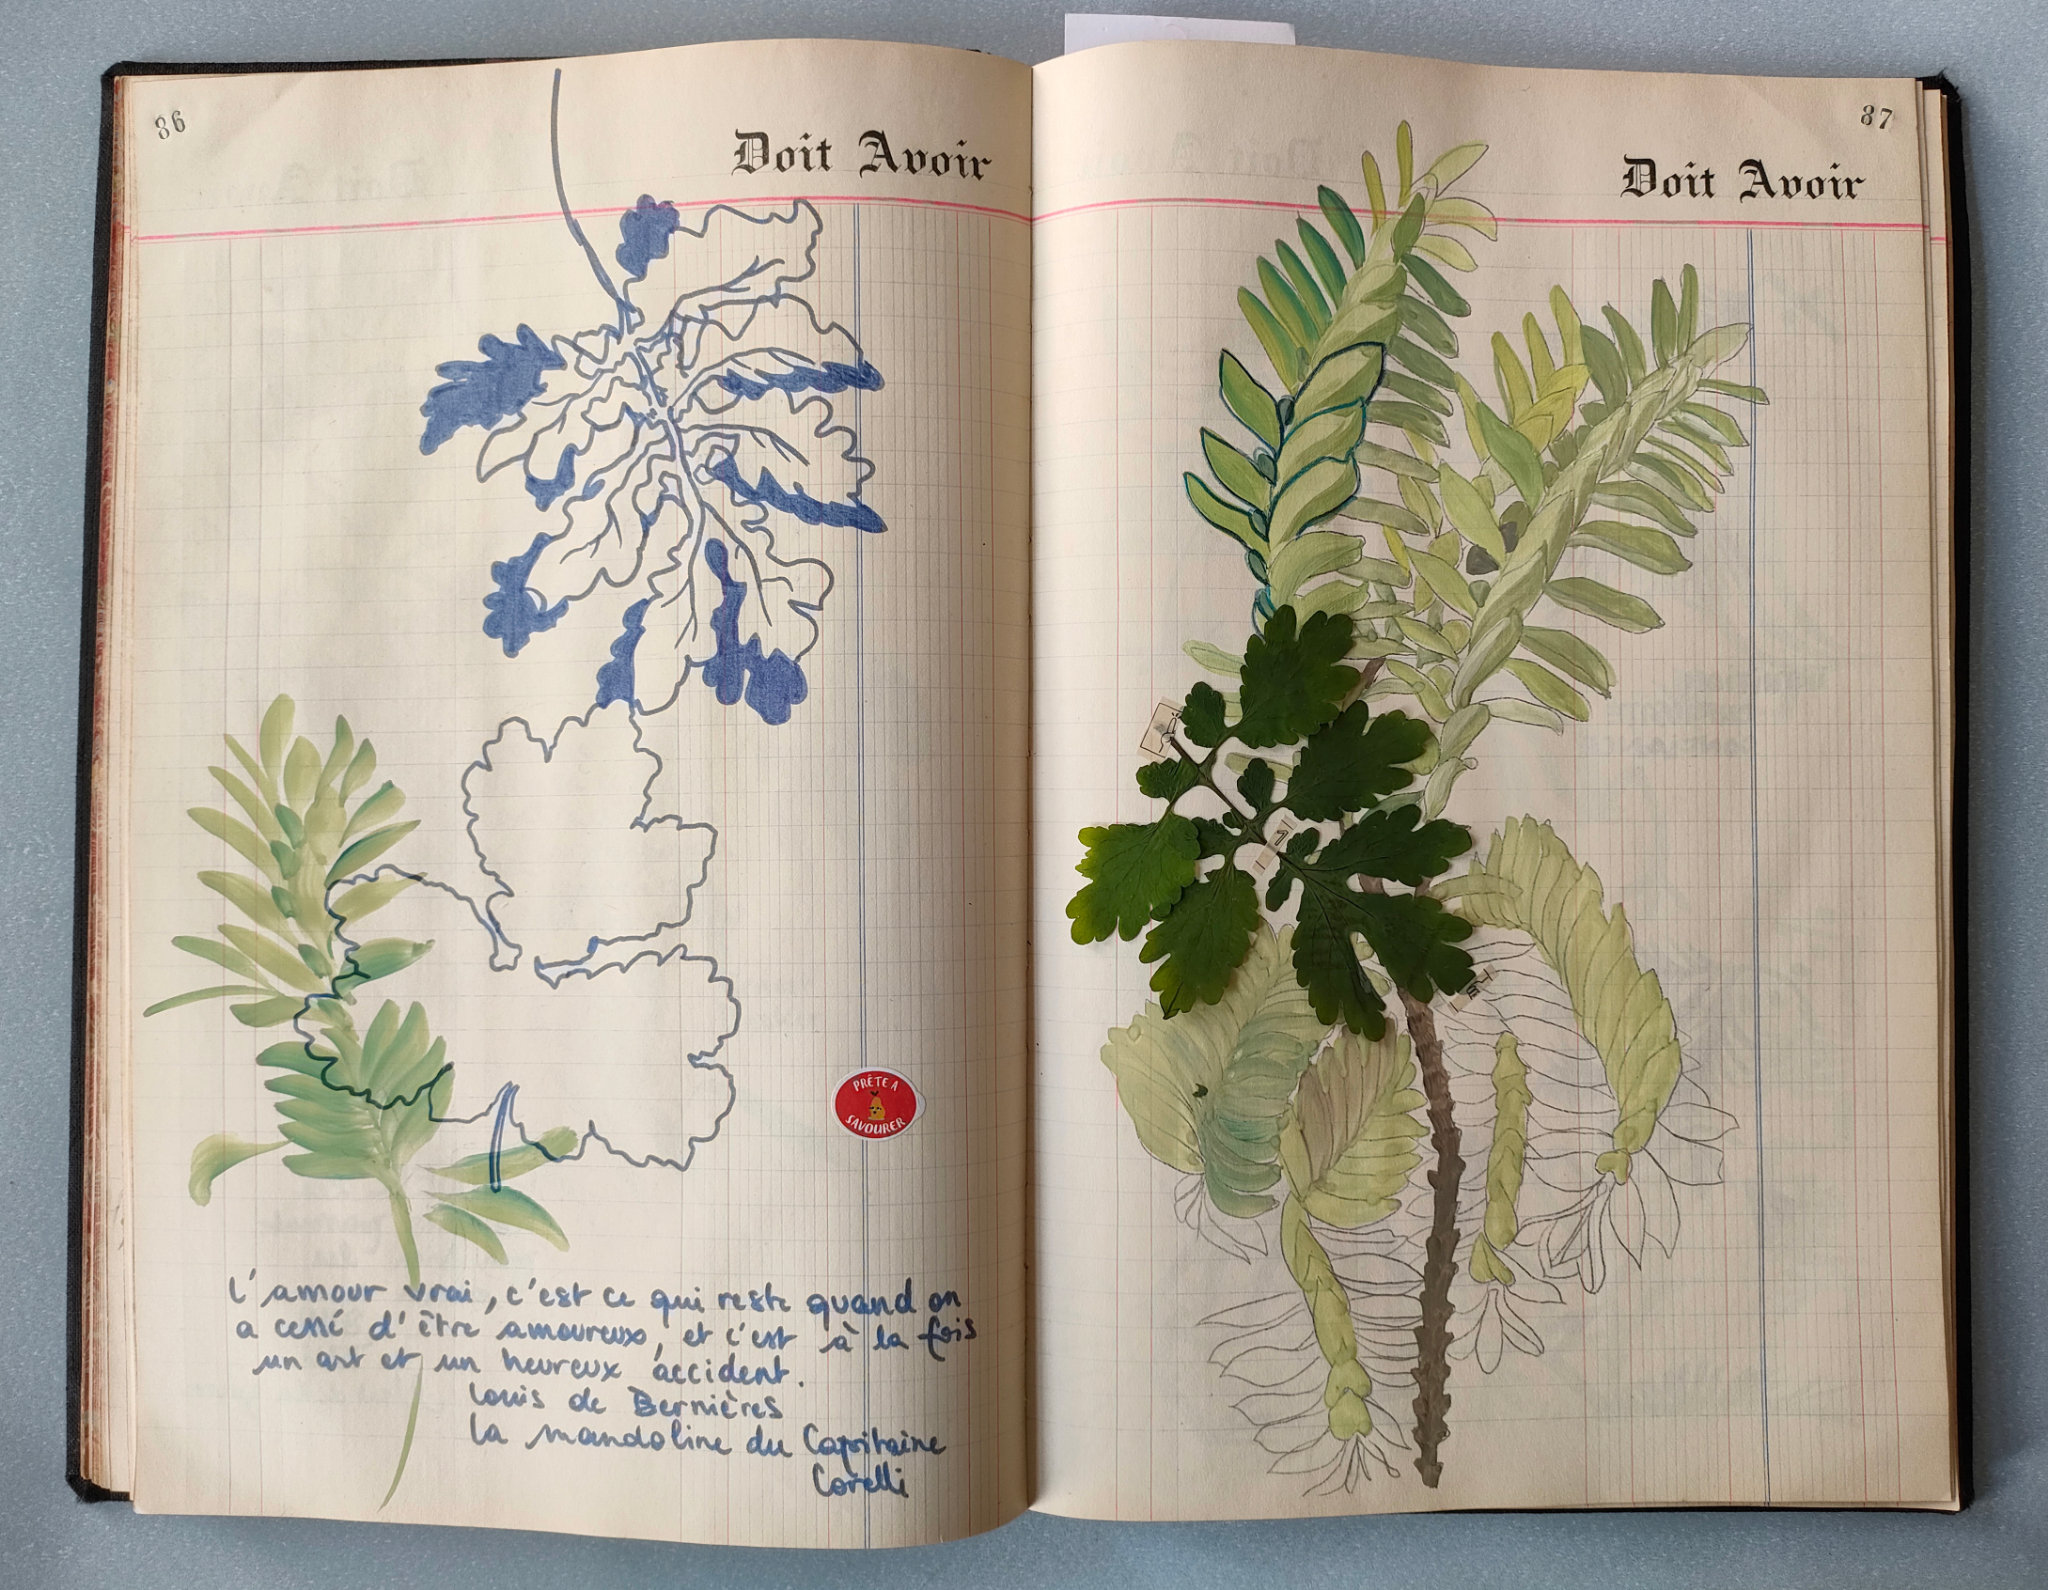 86
Doit Avoir
PRÊTE A
SAVOURER
l'amour vrai, c'est ce qui reste quand on
a cessé d'être amoureux, et c'est à la fois
un art et un heureux accident.
Louis de Bernières
La mandoline du Capitaine
Corelli
87
Doit Avoir